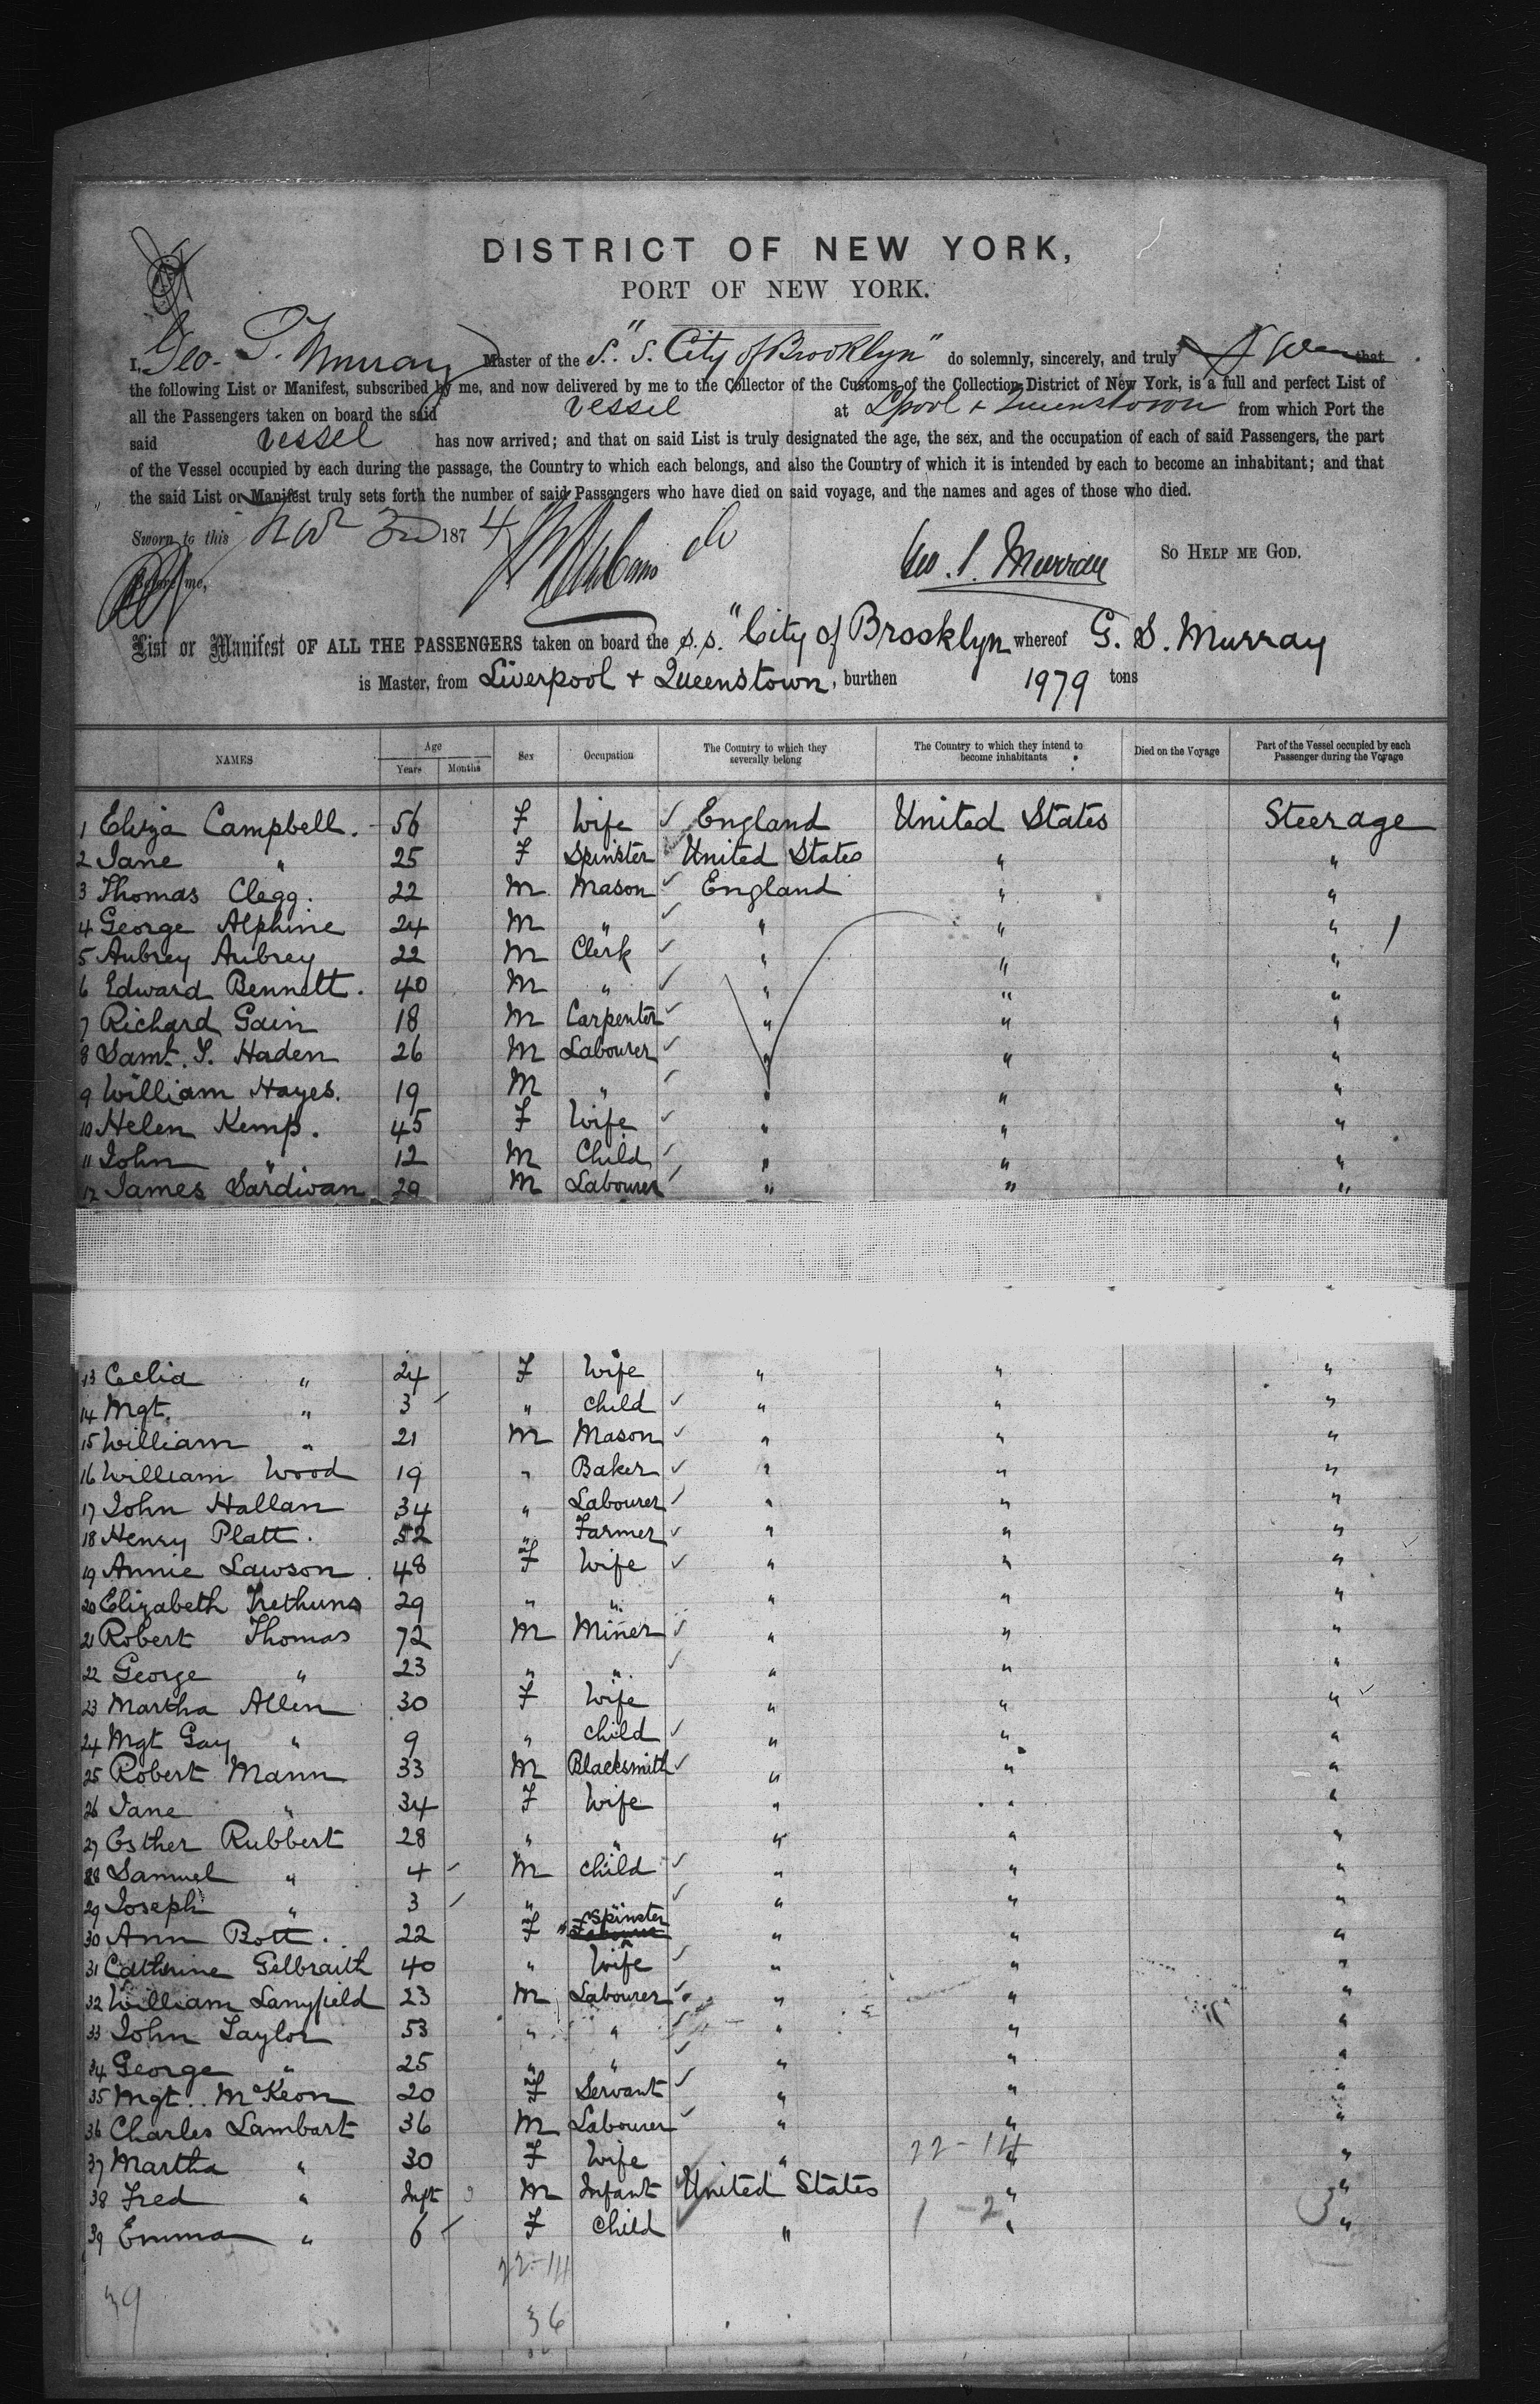 DISTRICT OF NEW YORK,
PORT OF NEW YORK.
I, Geo. S. Murray Master of the S. "S. City of Brooklyn" do solemnly, sincerely, and truly Swear that
the following List or Manifest, subscribed by me, and now delivered by me to the Collector of the Customs of the Collection District of New York, is a full and perfect List of
all the Passengers taken on board the said vessel at Lpool & Queenstown from which Port the
said vessel has now arrived; and that on said List is truly designated the age, the sex, and the occupation of each of said Passengers, the part
of the Vessel occupied by each during the passage, the Country to which each belongs, and also the Country of which it is intended by each to become an inhabitant; and that
the said List or Manifest truly sets forth the number of said Passengers who have died on said voyage, and the names and ages of those who died.
Sworn to this Nov 3rd 1874 Geo. S. Murray SO HELP ME GOD.
Before me,
List or Manifest OF ALL THE PASSENGERS taken on board the S.S. "City of Brooklyn whereof G. S. Murray
is Master, from Liverpool & Queenstown, burthen 1979 tons
NAMES Age Years Months Sex Occupation The Country to which they severally belong The Country to which they intend to become inhabitants Died on the Voyage Part of the Vessel occupied by each Passenger during the Voyage
1 Eliza Campbell. 56 F Wife England United States Steerage
2 Jane " 25 F Spinster United States " "
3 Thomas Clegg. 22 M Mason England " "
4 George Alphine 24 M " " " " 1
5 Aubrey Aubrey 22 M Clerk " " "
6 Edward Bennett. 40 M " " " "
7 Richard Gain 18 M Carpenter " " "
8 Saml. S. Haden 26 M Labourer " " "
9 William Hayes. 19 M " " " "
10 Helen Kemp. 45 F Wife " " "
11 John " 12 M Child " " "
12 James Sardivan 29 M Labourer " " "
13 Celia " 24 F Wife " " "
14 Mgt. " 3 " Child " " "
15 William " 21 M Mason " " "
16 William Wood 19 " Baker " " "
17 John Hallan 34 " Labourer " " "
18 Henry Platt. 52 " Farmer " " "
19 Annie Lawson. 48 F Wife " " "
20 Elizabeth 29 " " " " "
21 Robert Thomas 72 M Miner " " "
22 George " 23 " " " " "
23 Martha Allen 30 F Wife " " "
24 Mgt Gay " 9 " Child " " "
25 Robert Mann 33 M Blacksmith " " "
26 Jane " 34 F Wife " " "
27 Esther Rubbert 28 " " " " "
28 Samuel " 4 M Child " " "
29 Joseph " 3 " " " " "
30 Ann Bott. 22 F Spinster " " "
31 Catherine Gelbraith 40 " Wife " " "
32 William Lanyfield 23 M Labourer " " "
33 John Taylor 53 " " " " "
34 George " 25 " " " " "
35 Mgt. McKeon 20 F Servant " " "
36 Charles Lambart 36 M Labourer " " "
37 Martha " 30 F Wife " 22-14 " "
38 Fred " Inft M Infant United States " "
39 Emma " 6 F Child " 1 - 2 " 3 "
22-14
39 36